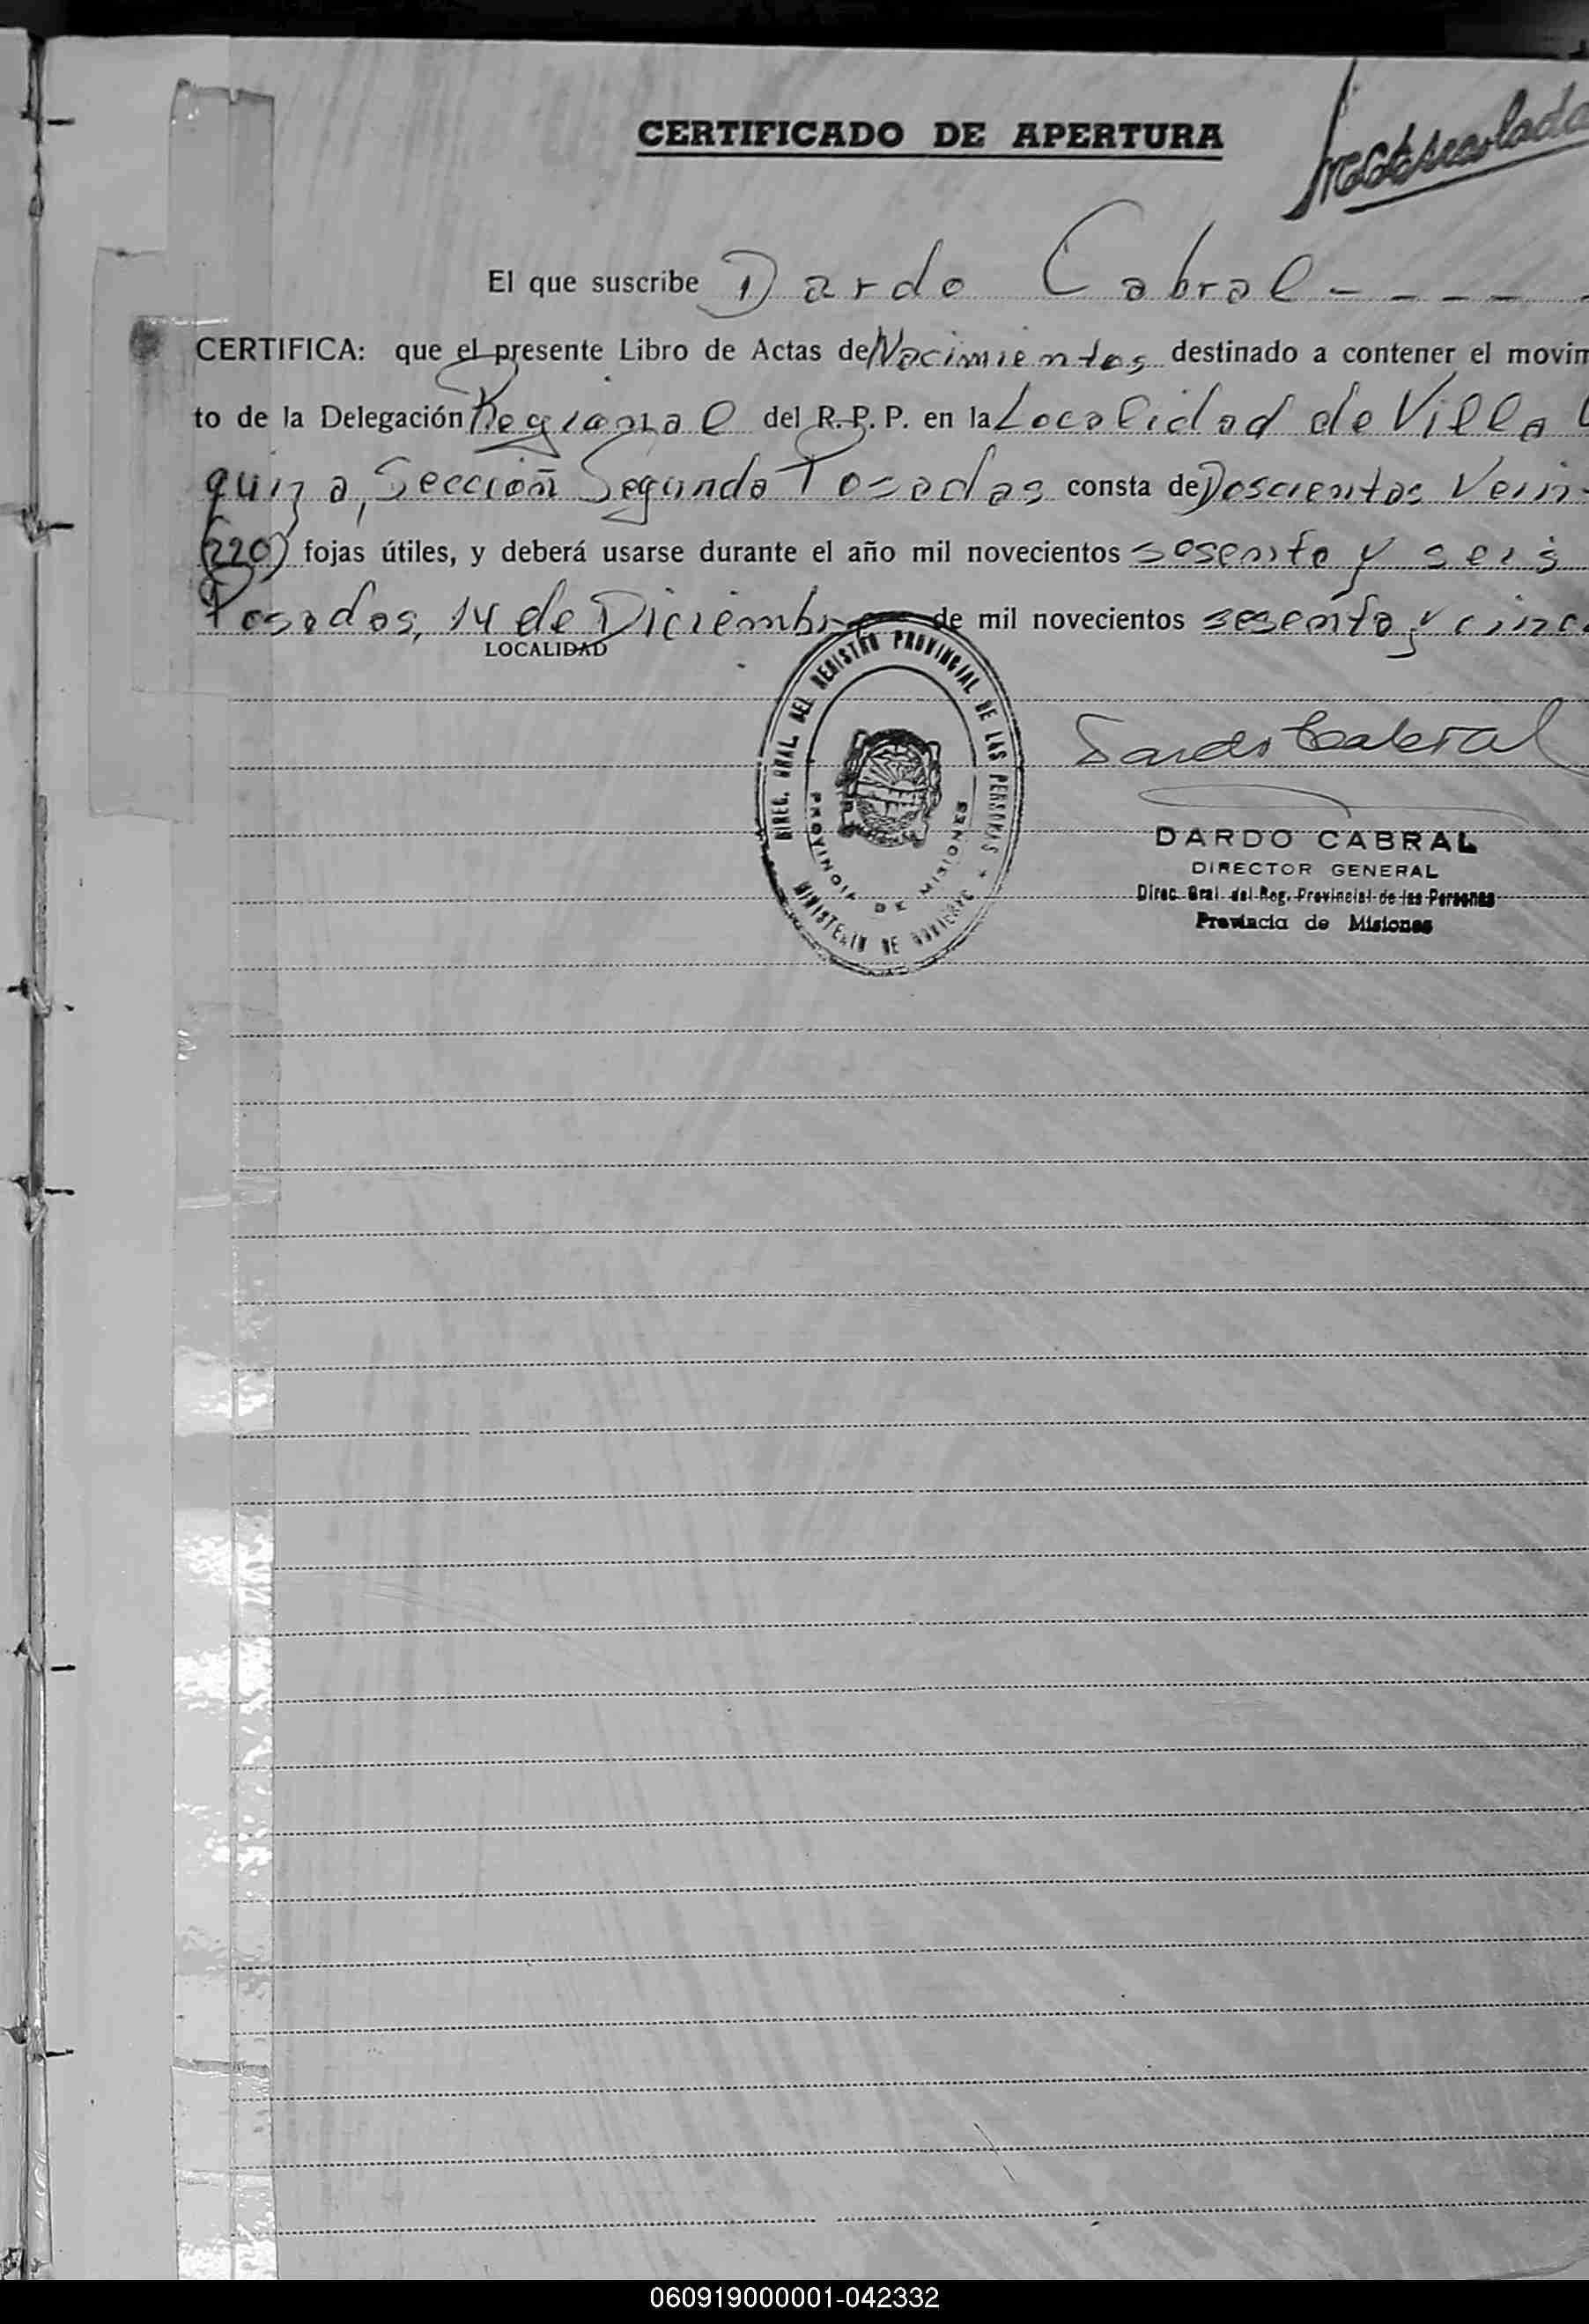 CERTIFICADO DE APERTURA
El que suscribe Dardo Cabral - - - -
CERTIFICA: que el presente Libro de Actas de Nacimientos destinado a contener el movim
to de la Delegación Regional del R. P. P. en la Localidad de Villa U
quiza, Sección Segunda Posadas consta de Doscientas Vein-
(220) fojas útiles, y deberá usarse durante el año mil novecientos sesenta y seis
Posadas, 14 de Diciembre de mil novecientos sesenta y cinc
LOCALIDAD
DIREC. GRAL. DEL REGISTRO PROVINCIAL DE LAS PERSONAS
PROVINCIA DE MISIONES
MINISTERIO DE GOBIERNO
Dardo Cabral
DARDO CABRAL
DIRECTOR GENERAL
Direc. Gral. del Reg. Provincial de las Personas
Provincia de Misiones
060919000001-042332